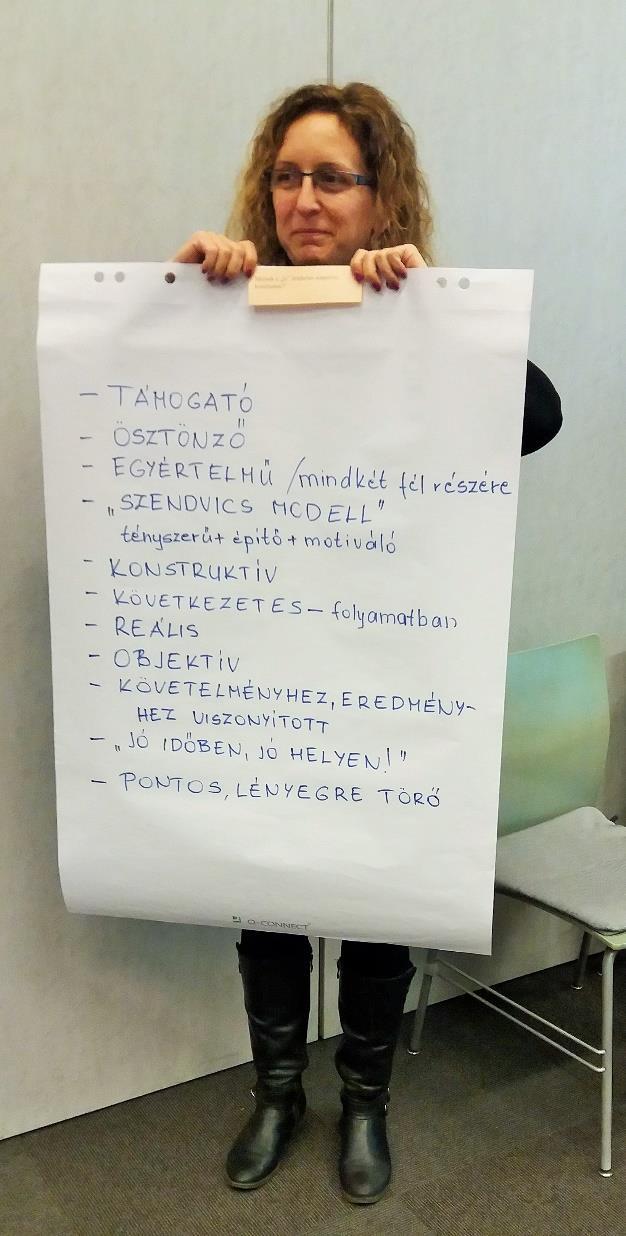 – TÁMOGATÓ
– ÖSZTÖNZŐ
– EGYÉRTELMŰ /mindkét fél részére
– „SZENDVICS MODELL”
tényszerű + építő + motiváló
– KONSTRUKTÍV
– KÖVETKEZETES – folyamatban
– REÁLIS
– OBJEKTÍV
– KÖVETELMÉNYHEZ, EREDMÉNY-
HEZ VISZONYÍTOTT
– „JÓ IDŐBEN, JÓ HELYEN!”
– PONTOS, LÉNYEGRE TÖRŐ
Q-CONNECT